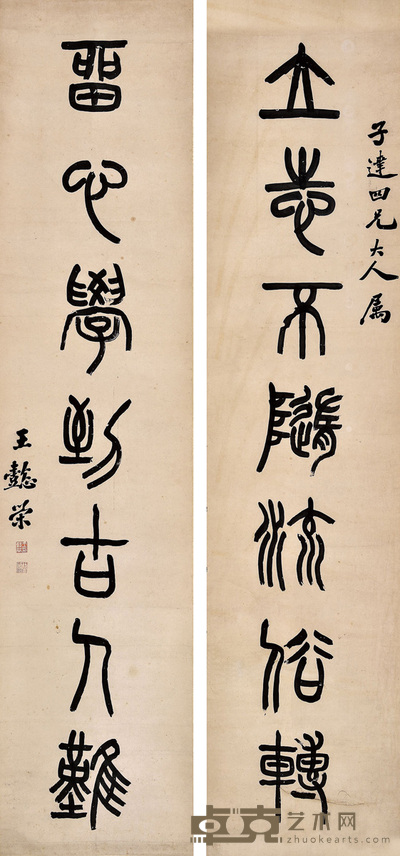 子達四兄大人属
立志不隨流俗轉
留心學到古人難
王懿榮
卓克艺术网
www.zhuokearts.com